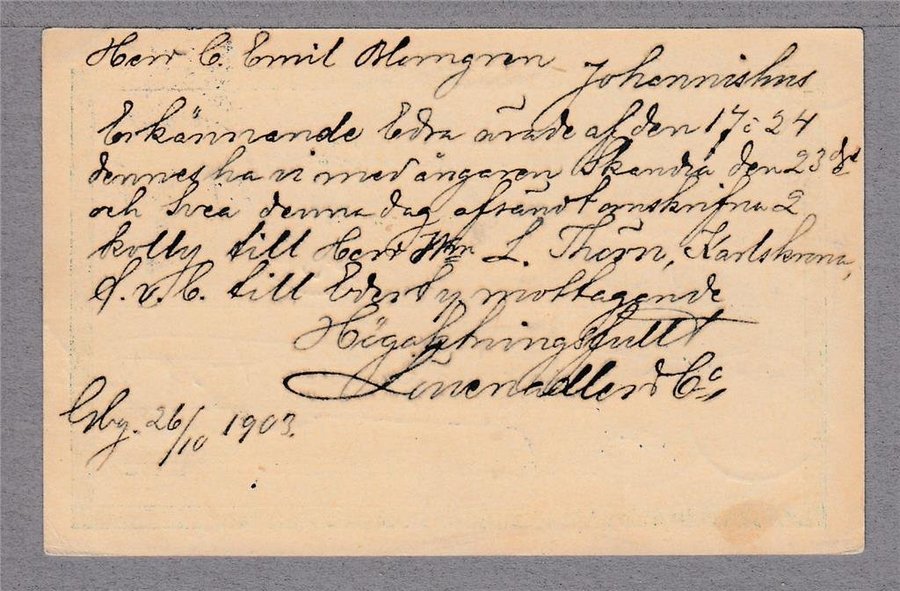 Herr C. Emil Blomgren
Johannishus
Erkännande Edra ärade af den 17 & 24
dennes ha vi med ångaren Skandia den 23 ds
och Svea denna dag afsändt omskrifna 2
kolly till Herr Wm L. Thörn, Karlskrona,
f. v. b. till Eder mottagande
Högaktningsfullt
& Co
Gbg. 26/10 1903.